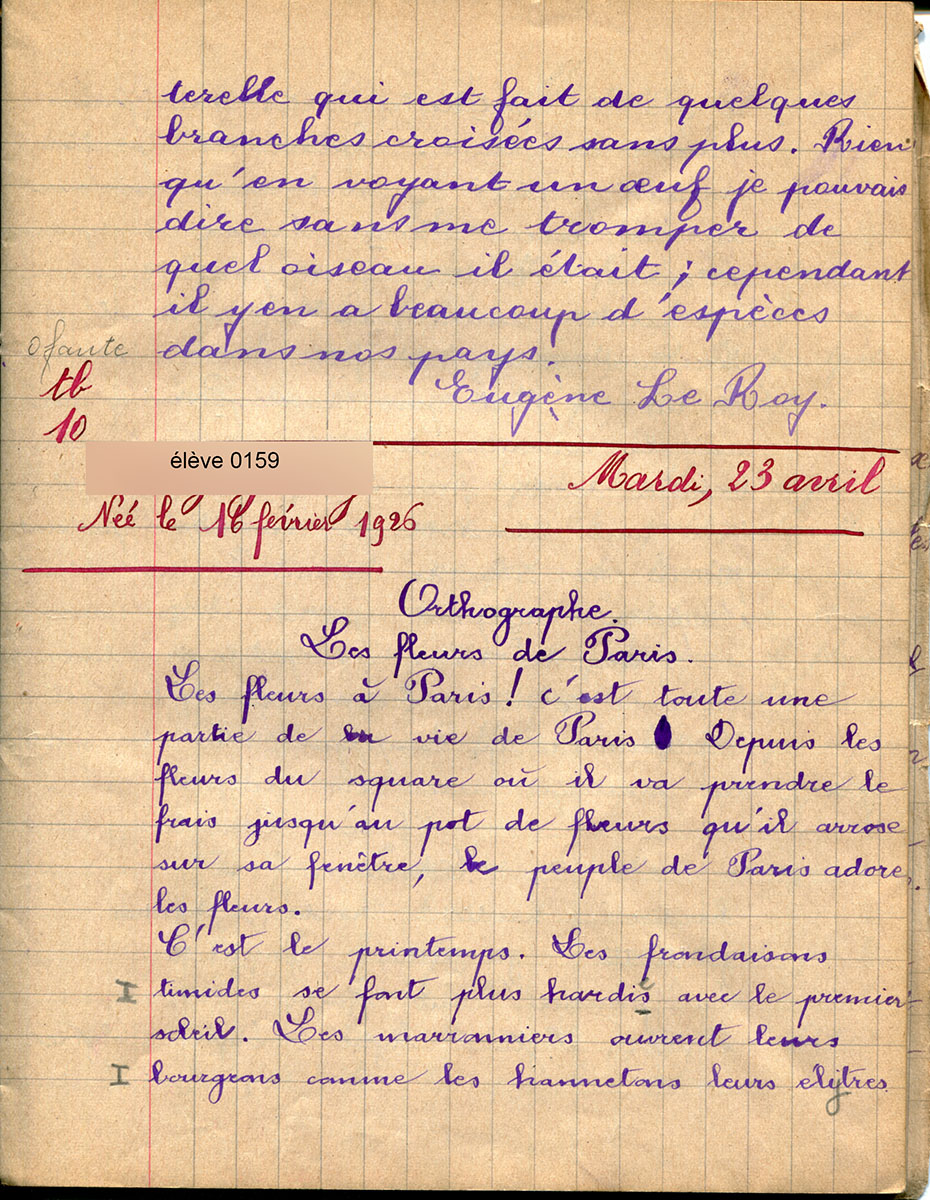 terelle qui est fait de quelques
branches croisées sans plus. Rien
qu'en voyant un œuf je pouvais
dire sans me tromper de
quel oiseau il était ; cependant
il y en a beaucoup d'espèces
0 faute dans nos pays.
tb
Eugène Le Roy.
10
élève 0159
Mardi, 23 avril
Néé le 16 février 1926
Orthographe.
Les fleurs de Paris.
Les fleurs à Paris ! c'est toute une
partie de la vie de Paris Depuis les
fleurs du square où il va prendre le
frais jusqu'au pot de fleurs qu'il arrose
sur sa fenêtre, le peuple de Paris adore
les fleurs.
C'est le printemps. Les frondaisons
I timides se font plus hardis avec le premier
soleil. Les marronniers ouvrent leurs
I bourgeons comme les hannetons leurs elytres